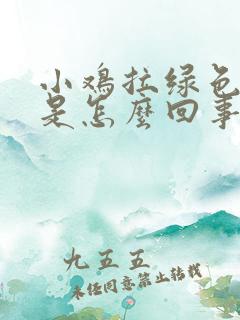 小鸡拉绿色
是怎麽回事
九五五
未经同意禁止转载